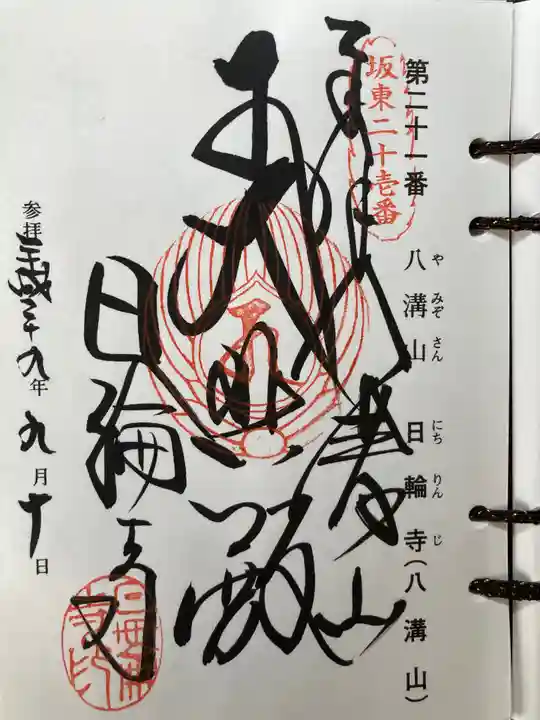 第二十一番 八溝山 日輪寺(八溝山)
や みぞ さん にち りん じ
坂東二十壱番
奉拝
八溝山
大悲殿
日輪寺
参拝 平成二十九年九月十日